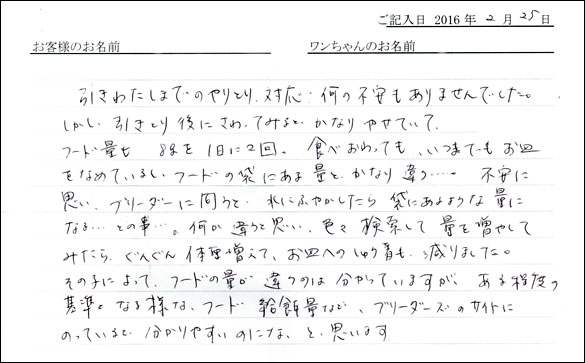 ご記入日 2016 年 2 月 25 日
お客様のお名前 ワンちゃんのお名前
引きわたしまでのやりとり、対応、何の不安もありませんでした。
しかし 引きとり後に さわってみると かなり やせていて、
フード量も 8gを 1日に2回。食べおわっても、いつまでも お皿
をなめているし フードの袋にある量と、かなり違う…。不安に
思い、ブリーダーに 問うと、水にふやかしたら 袋にあるような量に
なる… との事…。何か違うと思い、色々 検索して 量を増やして
みたら、ぐんぐん 体重増えて、お皿への しゅう着も 減りました。
その子によって、フードの量が 違うのは 分かっていますが、ある程度の
基準と なる様な、フード 給餌量など、ブリーダーズのサイトに
のっていると 分かりやすいのになと 思います